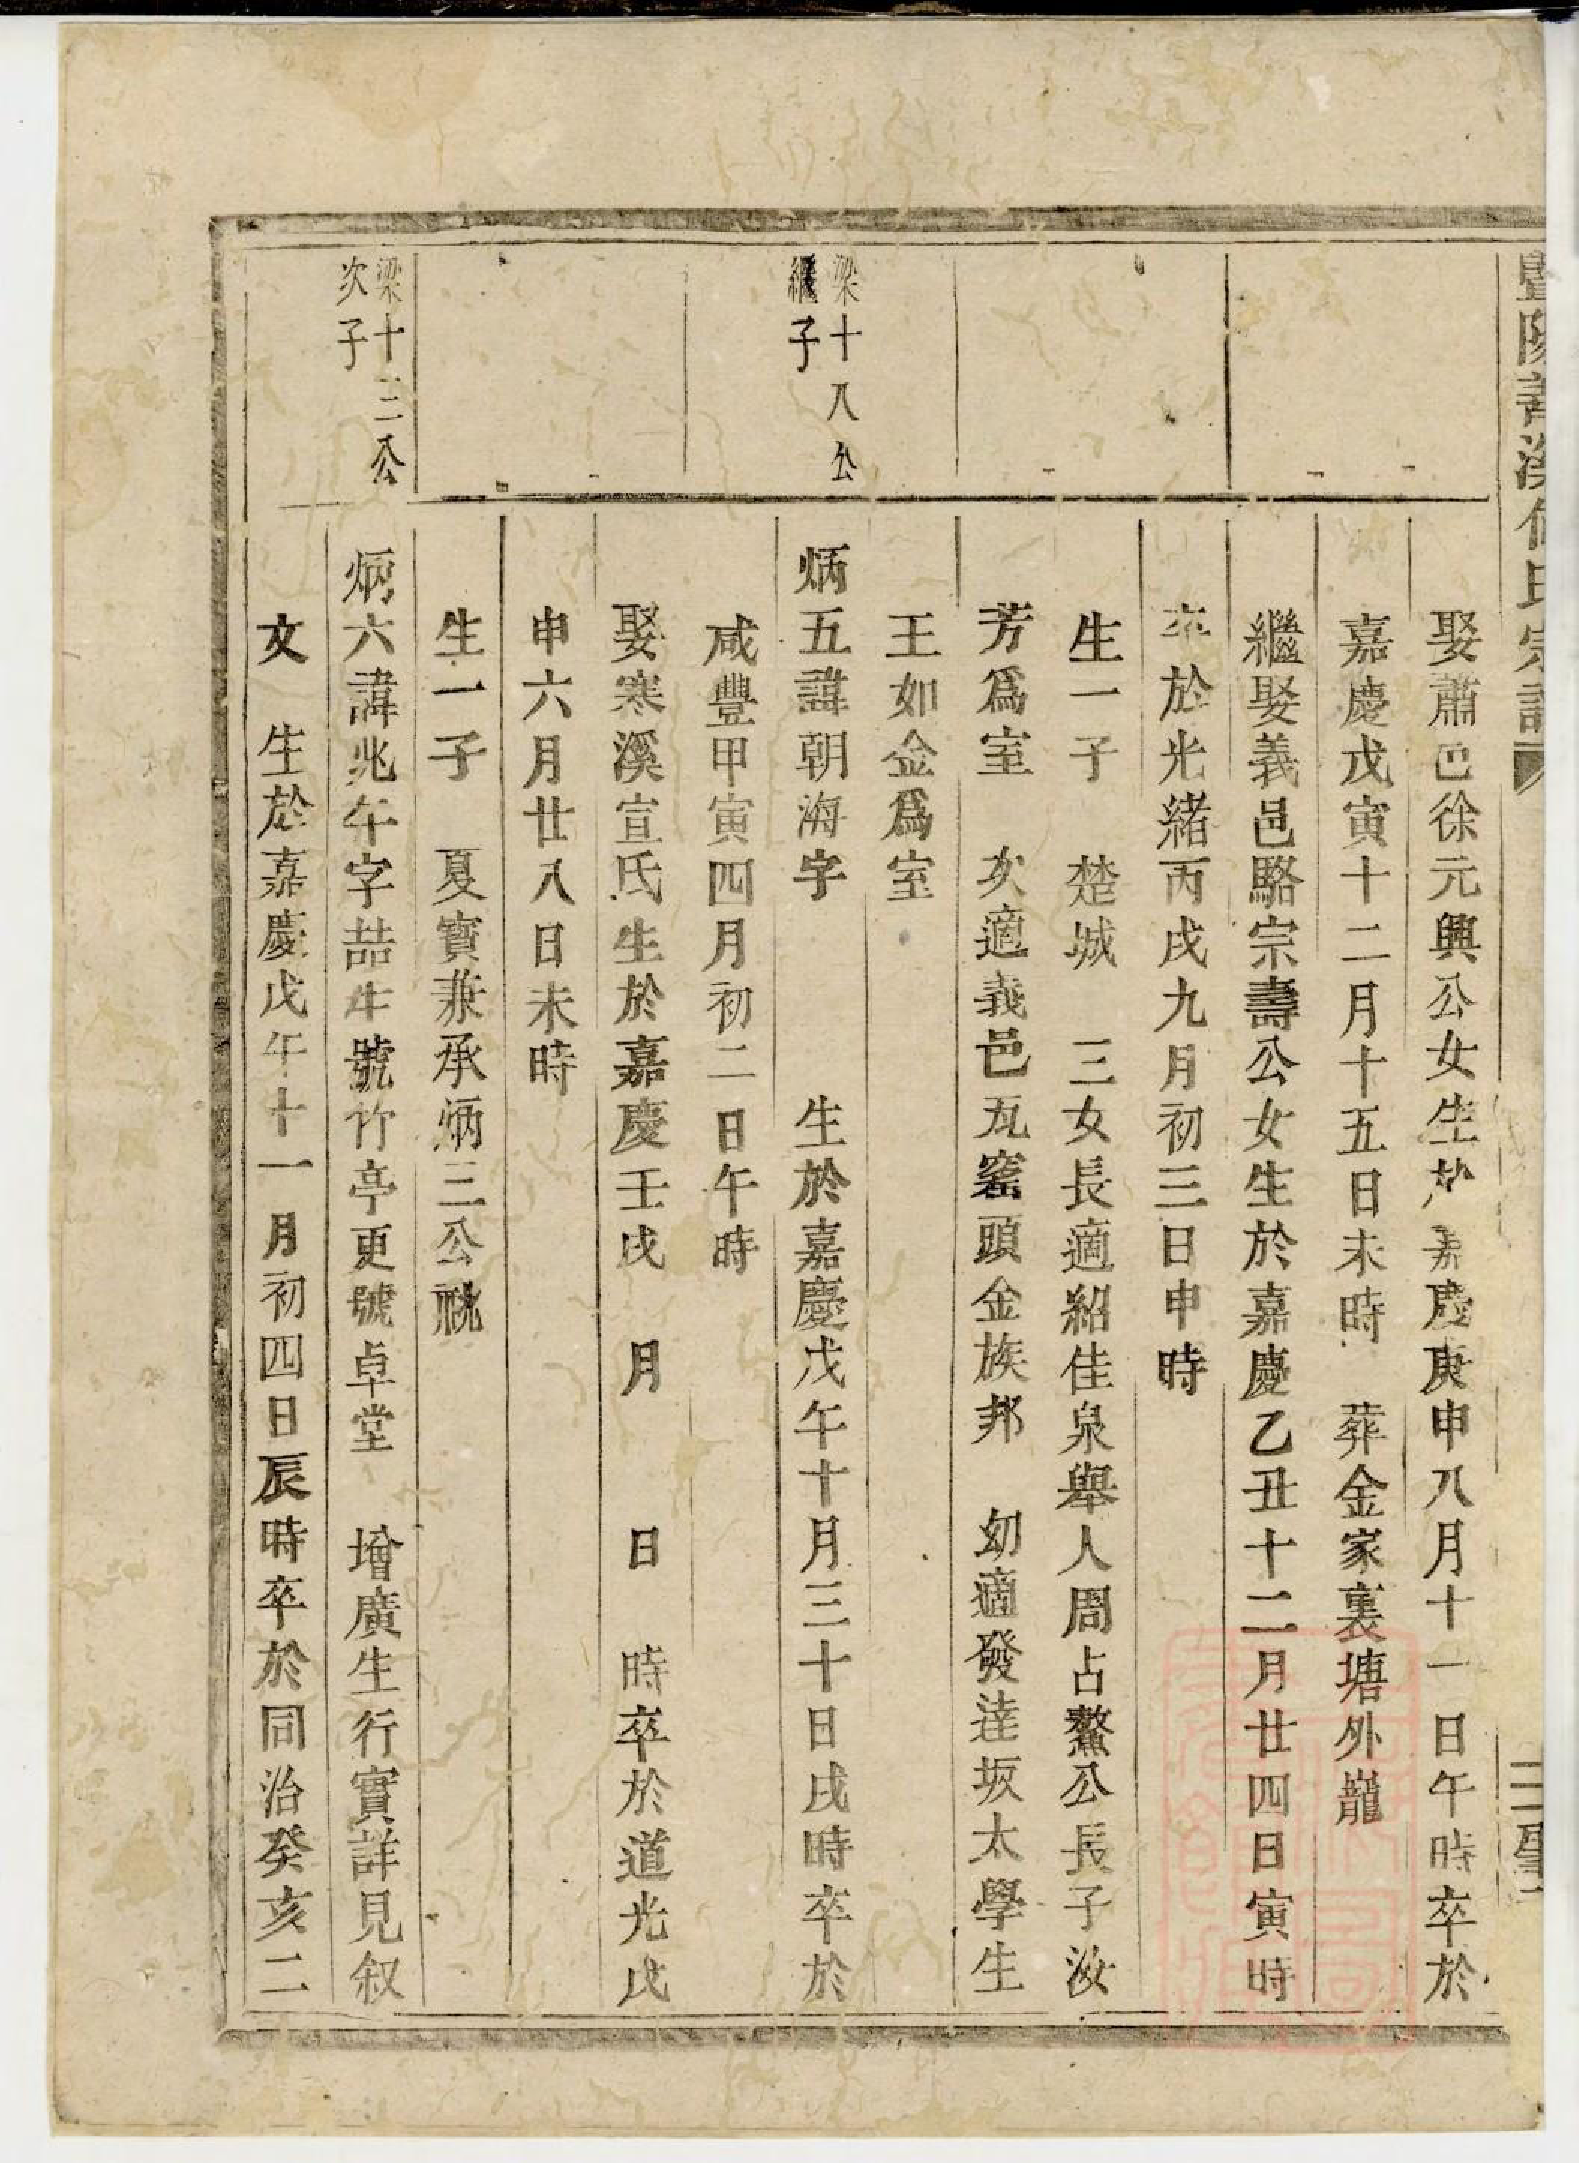 娶蕭邑徐元興公女生於嘉慶庚申八月十一日午時卒於
嘉慶戊寅十二月十五日未時 葬金家裏塘外巃
繼娶義邑駱宗壽公女生於嘉慶乙丑十二月廿四日寅時
卒於光緒丙戌九月初三日申時
生一子 楚城 三女長適紹佳泉舉人周占鰲公長子汝
芳爲室 次適義邑瓦窰頭金族邦 幼適發㳠坂太學生
王如金爲室
梁十八公
繼子
炳五諱朝海字 生於嘉慶戊午十月三十日戌時卒於
咸豐甲寅四月初二日午時
娶寒溪宣氏生於嘉慶壬戌 月 日 時卒於道光戊
申六月廿八日未時
生一子 夏寶兼承炳三公祧
梁十三公
次子
炳六諱兆午字喆生號竹亭更號卓堂 增廣生行實詳見叙
文 生於嘉慶戊午十一月初四日辰時卒於同治癸亥二